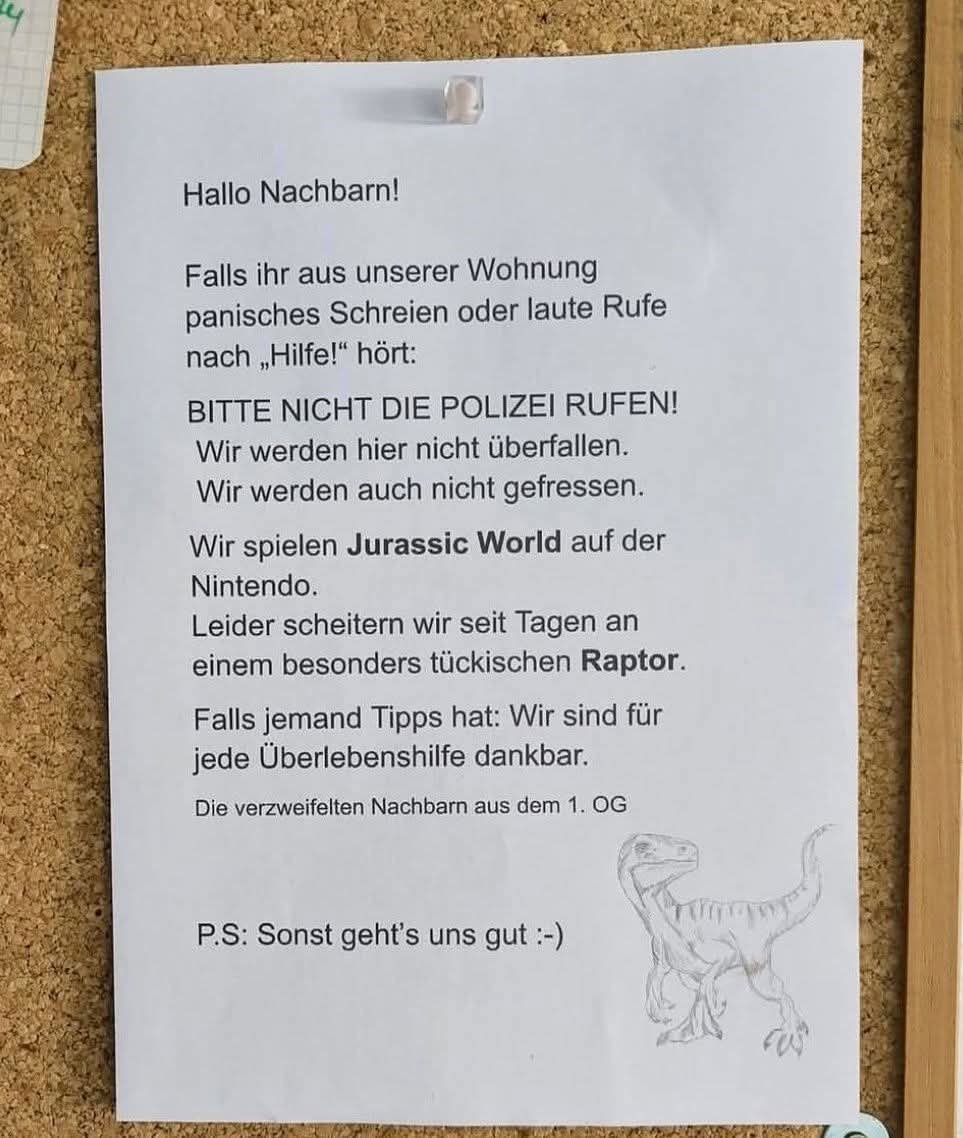 Hallo Nachbarn!
Falls ihr aus unserer Wohnung
panisches Schreien oder laute Rufe
nach „Hilfe!“ hört:
BITTE NICHT DIE POLIZEI RUFEN!
Wir werden hier nicht überfallen.
Wir werden auch nicht gefressen.
Wir spielen Jurassic World auf der
Nintendo.
Leider scheitern wir seit Tagen an
einem besonders tückischen Raptor.
Falls jemand Tipps hat: Wir sind für
jede Überlebenshilfe dankbar.
Die verzweifelten Nachbarn aus dem 1. OG
P.S: Sonst geht’s uns gut :-)